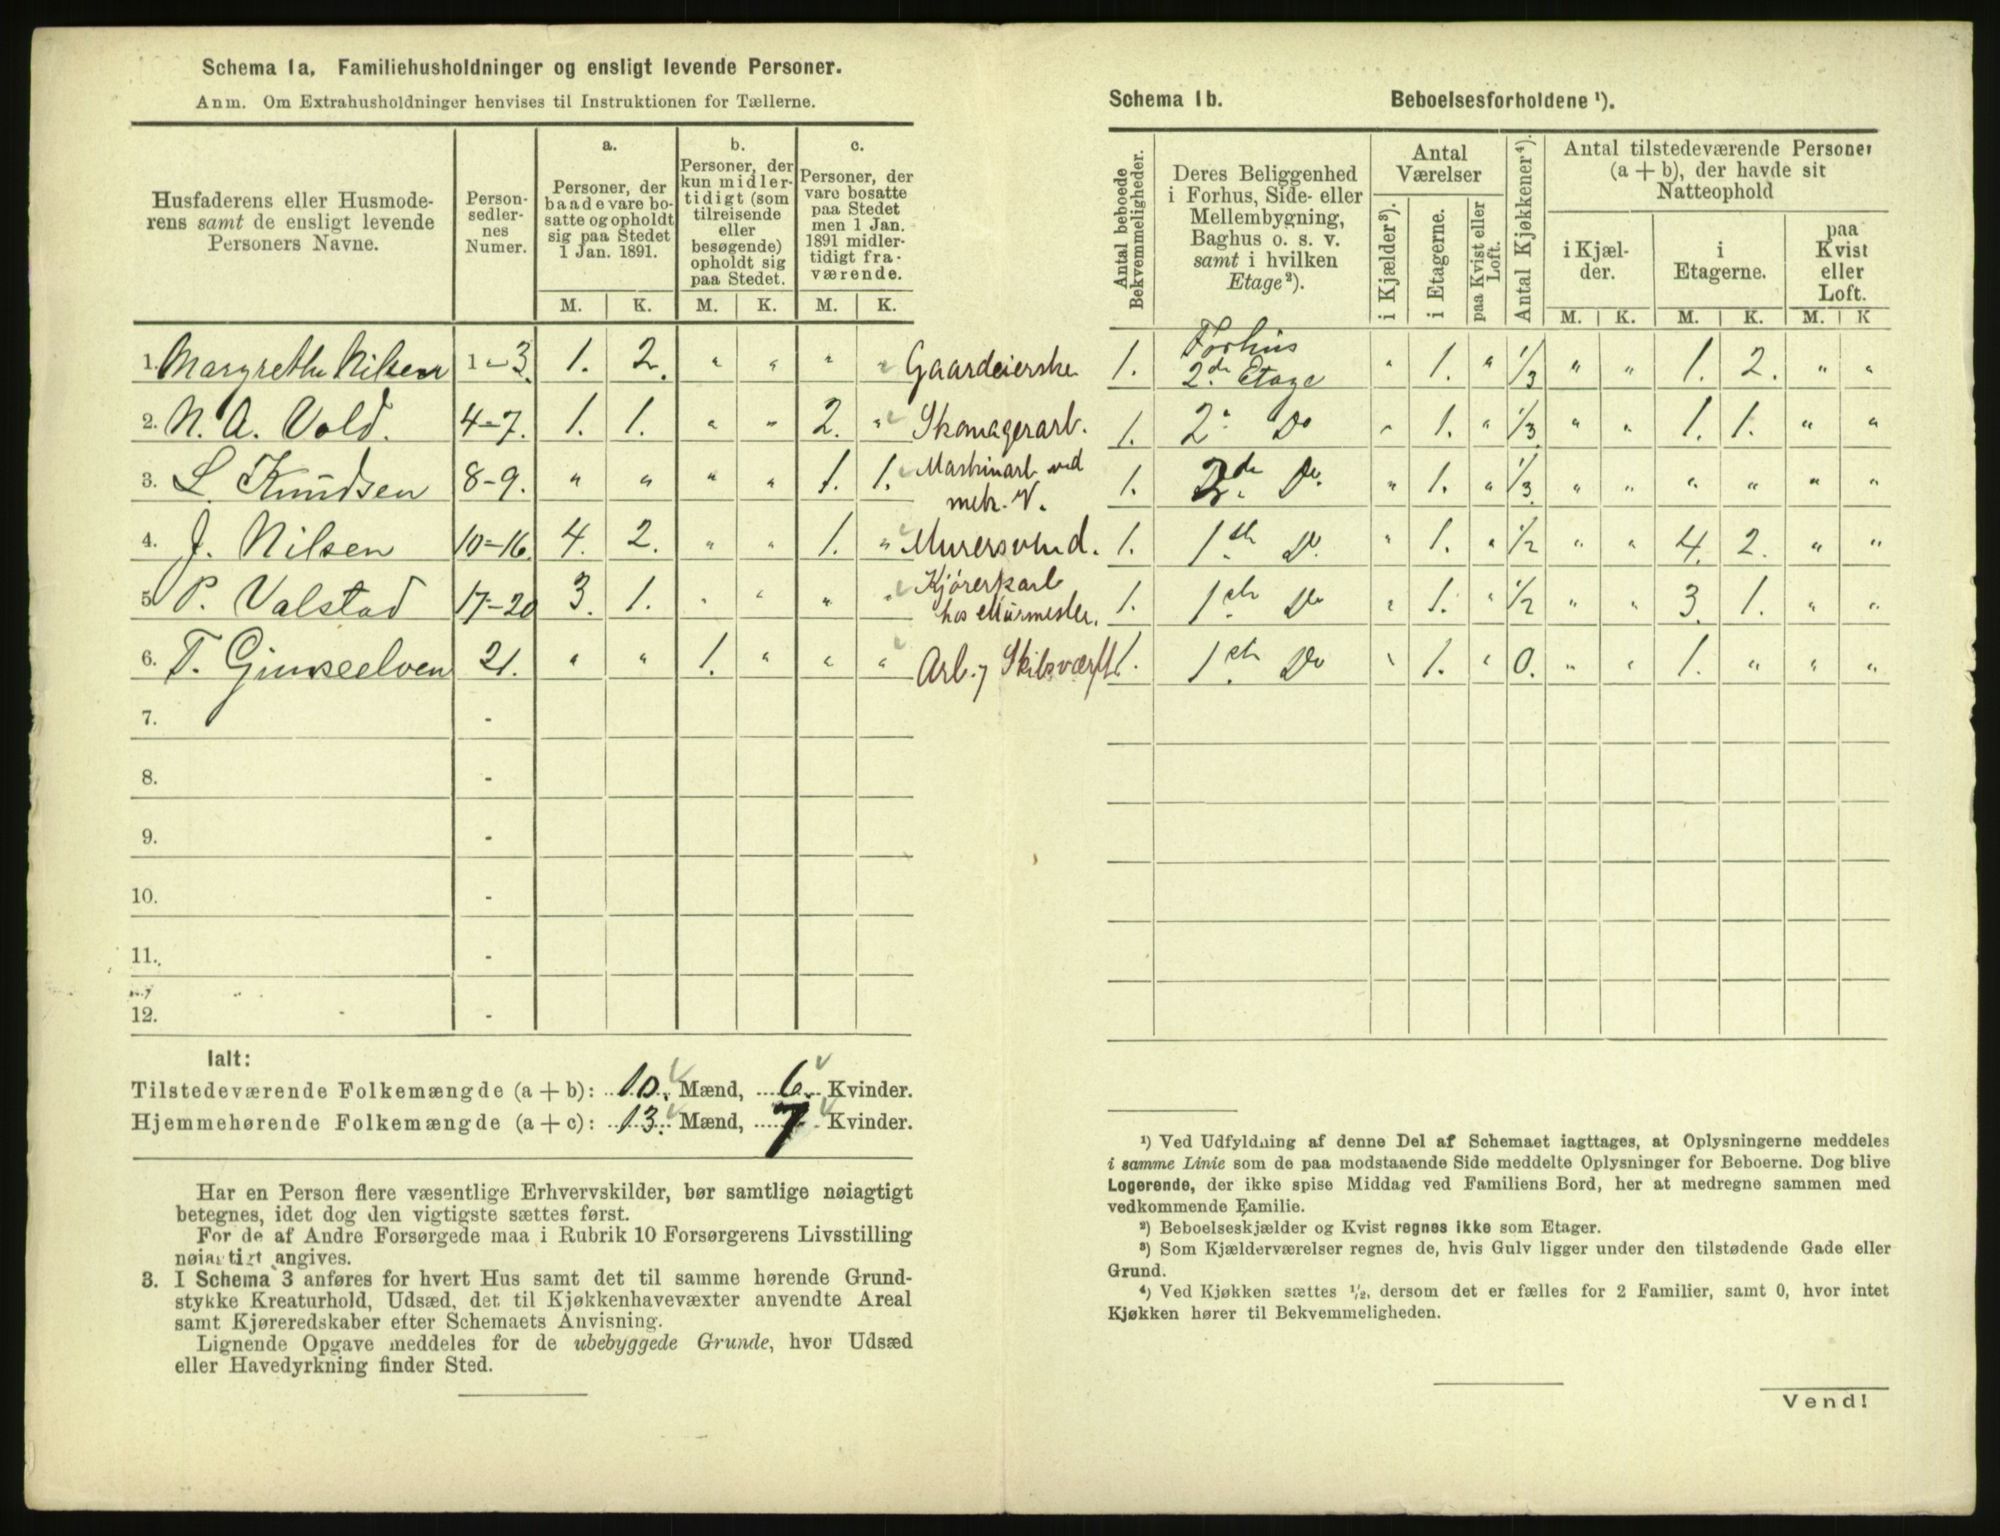 Schema 1a. Familiehusholdninger og ensligt levende Personer.
Anm. Om Extrahusholdninger henvises til Instruktionen for Tællerne.
Husfaderens eller Husmoderens samt de ensligt levende Personers Navne.
Personsedlernes Numer.
a. Personer, der baade vare bosatte og opholdt sig paa Stedet 1 Jan. 1891.
b. Personer, der kun midlertidigt (som tilreisende eller besøgende) opholdt sig paa Stedet.
c. Personer, der vare bosatte paa Stedet men 1 Jan. 1891 midlertidigt fraværende.
M. K. M. K. M. K.
1. Margrethe Nilsen 1-3. 1. 2. " " " " Gaardeierske
2. N. A. Vold. 4-7. 1. 1. " " 2. " Skomagerarb.
3. L. Knudsen 8-9. " " " " 1. 1. Maskinarb ved
mek. V.
4. J. Nilsen 10-16. 4. 2. " " 1. " Murersvend.
5. P. Valstad 17-20 3. 1. " " " " Kjørerkarl
hos Murmester.
6. T. Gimseelven 21. " " 1. " " " Arb. Skibsværft
7. -
8. -
9. -
10. -
11. -
12. -
Ialt:
Tilstedeværende Folkemængde (a + b): 10. Mænd, 6. Kvinder.
Hjemmehørende Folkemængde (a + c): 13. Mænd, 7 Kvinder.
Har en Person flere væsentlige Erhvervskilder, bør samtlige nøiagtigt
betegnes, idet dog den vigtigste sættes først.
For de af Andre Forsørgede maa i Rubrik 10 Forsørgerens Livsstilling
nøiagtigt angives.
3. I Schema 3 anføres for hvert Hus samt det til samme hørende Grund-
stykke Kreaturhold, Udsæd, det til Kjøkkenhavevæxter anvendte Areal
samt Kjøreredskaber efter Schemaets Anvisning.
Lignende Opgave meddeles for de ubebyggede Grunde, hvor Udsæd
eller Havedyrkning finder Sted.
Schema 1b. Beboelsesforholdene ¹).
Antal beboede Bekvemmeligheder.
Deres Beliggenhed i Forhus, Side- eller Mellembygning, Baghus o. s. v. samt i hvilken Etage²).
Antal Værelser
i Kjælder³).
i Etagerne.
paa Kvist eller Loft.
Antal Kjøkkener⁴).
Antal tilstedeværende Personer (a + b), der havde sit Natteophold
i Kjælder.
i Etagerne.
paa Kvist eller Loft.
M. K. M. K. M. K
1. Forhus
2.de Etage " 1. " 1/3 " " 1. 2. " "
1. 2 " Do " 1. " 1/3 " " 1. 1. " "
1. 2.de Do. " 1. " 1/3 " " " " " "
1. 1ste Do. " 1. " 1/2 " " 4. 2. " "
1. 1ste Do " 1. " 1/2 " " 3. 1. " "
1. 1ste Do " 1. " 0. " " 1. " " "
¹) Ved Udfyldning af denne Del af Schemaet iagttages, at Oplysningerne meddeles
i samme Linie som de paa modstaaende Side meddelte Oplysninger for Beboerne. Dog blive
Logerende, der ikke spise Middag ved Familiens Bord, her at medregne sammen med
vedkommende Familie.
²) Beboelseskjælder og Kvist regnes ikke som Etager.
³) Som Kjælderværelser regnes de, hvis Gulv ligger under den tilstødende Gade eller
Grund.
⁴) Ved Kjøkken sættes ½, dersom det er fælles for 2 Familier, samt 0, hvor intet
Kjøkken hører til Bekvemmeligheden.
Vend!